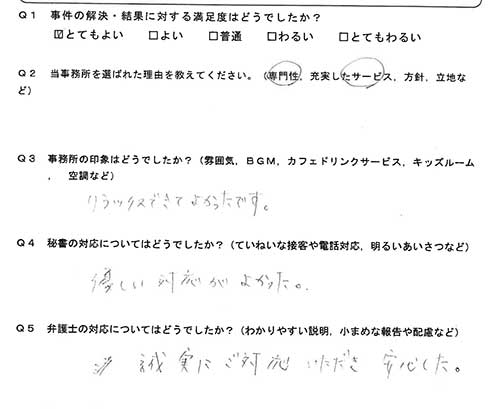 Q1 事件の解決・結果に対する満足度はどうでしたか?
☑とてもよい □よい □普通 □わるい □とてもわるい
Q2 当事務所を選ばれた理由を教えてください。(専門性,充実したサービス,方針,立地な
ど)
Q3 事務所の印象はどうでしたか?(雰囲気,BGM,カフェドリンクサービス,キッズルーム
, 空調など)
リラックスできてよかったです。
Q4 秘書の対応についてはどうでしたか?(ていねいな接客や電話対応,明るいあいさつなど)
優しい対応がよかった。
Q5 弁護士の対応についてはどうでしたか?(わかりやすい説明,小まめな報告や配慮など)
誠実にご対応いただき安心した。